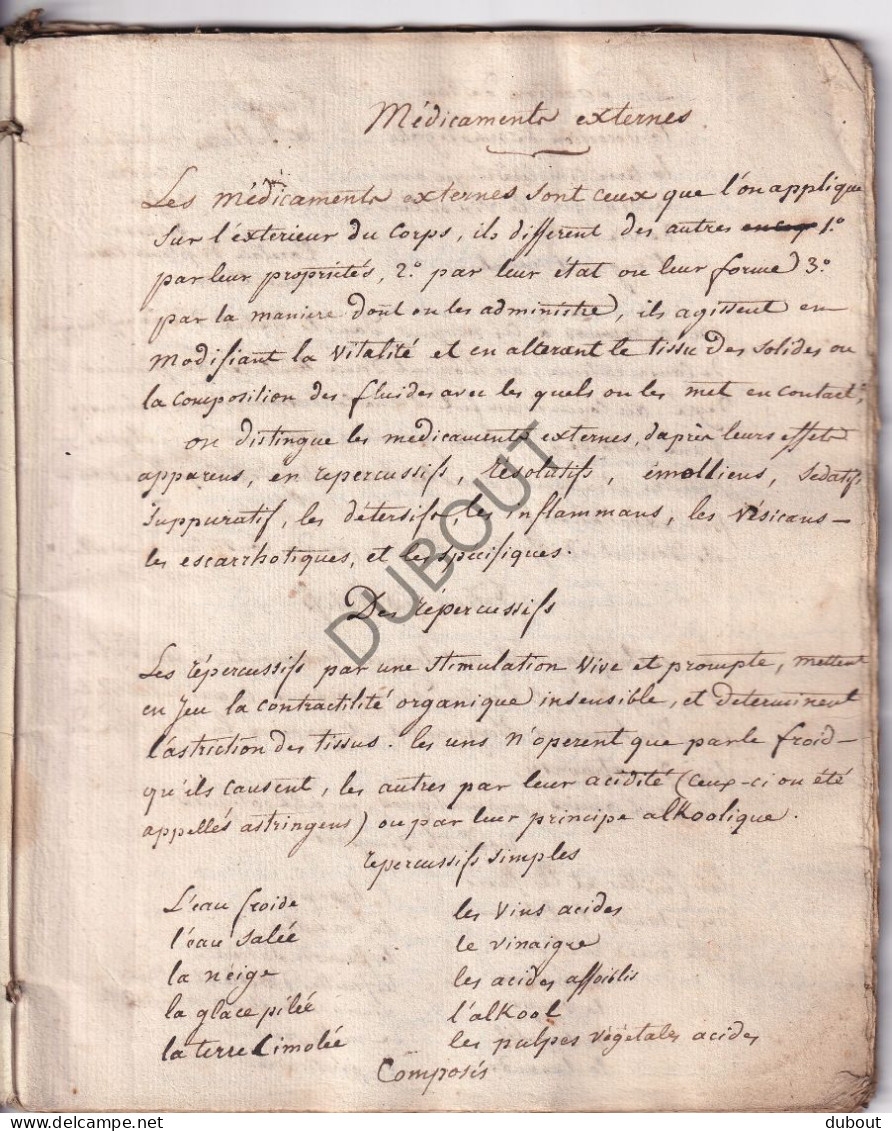 Médicaments externes
Les médicaments externes sont ceux que l'on applique
sur l'exterieur du corps, ils different des autres 1.°
par leur propriétés, 2.° par leur état ou leur forme 3.°
par la maniere dont on les administre, ils agissent en
modifiant la vitalité et en alterant le tissu des solides ou
la composition des fluides avec les quels on les met en contact,
on distingue les medicaments externes, d'après leurs effets
apparens, en repercussifs, résolutifs, émolliens, sedatifs
suppuratif, les détersifs, les inflammans, les vésicans-
les escarrhotiques, et les spécifiques.
Des répercussifs
Les répercussifs par une stimulation vive et prompte, mettent
en jeu la contractilité organique insensible, et determinent
l'astriction des tissus. les uns n'operent que par le froid-
qu'ils causent, les autres par leur acidité (ceux-ci on été
appellés astringens) ou par leur principe alkoolique.
repercussifs simples
L'eau froide
l'eau salée
la néige
la glace pilée
la terre Cimolée
les vins acides
le vinaigre
les acides affoiblis
l'alkool
les pulpes végetales acides
Composés
DUBOUT
delcampe.net
dubout